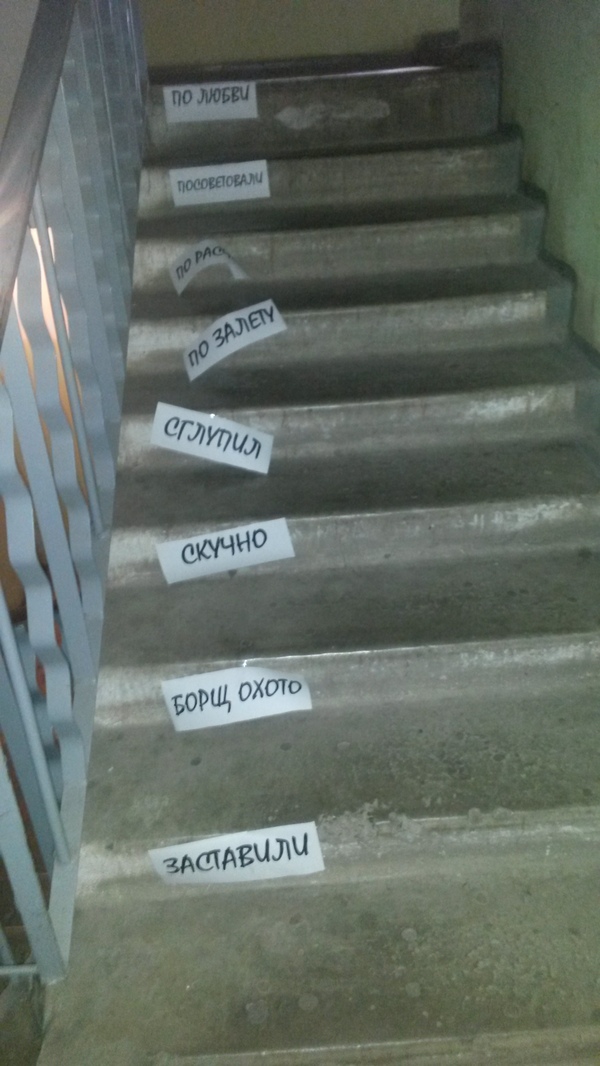 ПО ЛЮБВИ
ПОСОВЕТОВАЛИ
ПО
ПО ЗАЛЕТУ
СГЛУПИЛ
СКУЧНО
БОРЩ ОХОТО
ЗАСТАВИЛИ